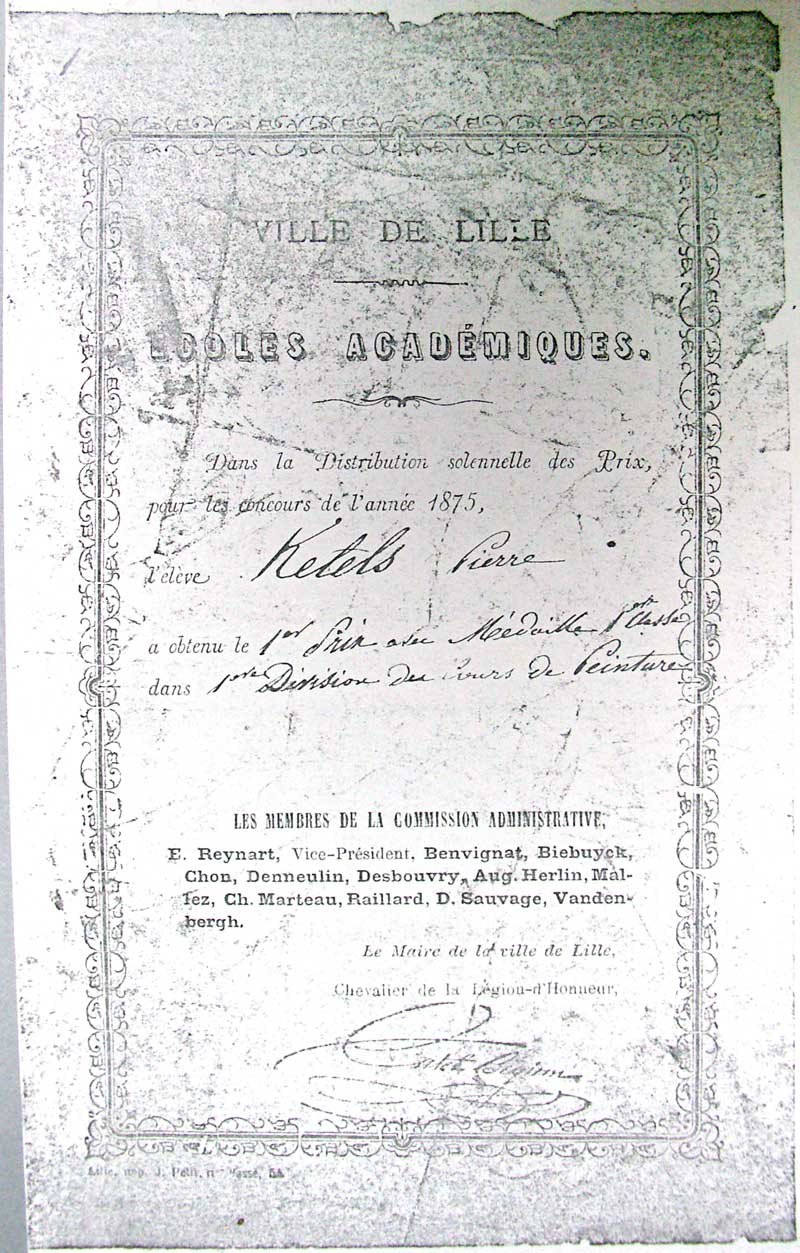 VILLE DE LILLE
ECOLES ACADÉMIQUES.
Dans la Distribution solennelle des Prix,
pour les concours de l'année 1875,
l'élève Ketels Pierre
a obtenu le 1er Prix avec Médaille 1ere Classe
dans 1ere Division du Cours de Peinture
LES MEMBRES DE LA COMMISSION ADMINISTRATIVE,
E. Reynart, Vice-Président, Benvignat, Biebuyck,
Chon, Denneulin, Desbouvry, Aug. Herlin, Mal-
tez, Ch. Marteau, Raillard, D. Sauvage, Vanden-
bergh.
Le Maire de la ville de Lille,
Chevalier de la Légion-d'Honneur,
Lille, imp. J. Petit,